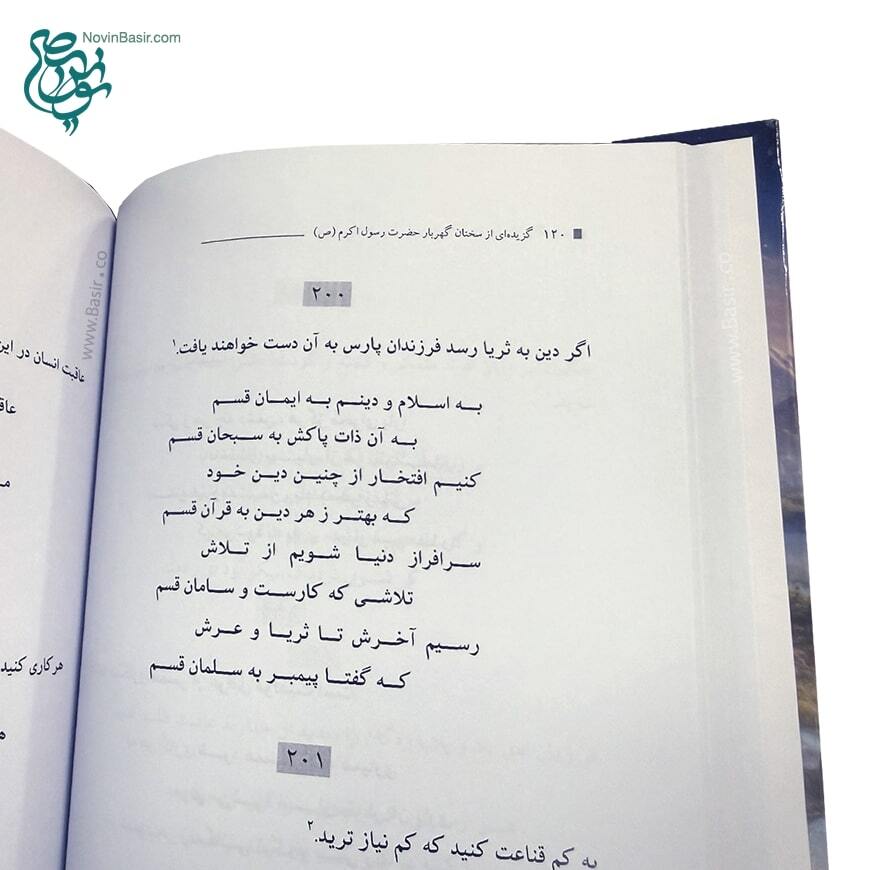 NovinBasir.com
۱۲۰ گزیده‌ای از سخنان گهربار حضرت رسول اکرم (ص)
۲۰۰
اگر دین به ثریا رسد فرزندان پارس به آن دست خواهند یافت.۱
به اسلام و دینم به ایمان قسم
به آن ذات پاکش به سبحان قسم
کنیم افتخار از چنین دین خود
که بهتر ز هر دین به قرآن قسم
سرافراز دنیا شویم از تلاش
تلاشی که کارست و سامان قسم
رسیم آخرش تا ثریا و عرش
که گفتا پیمبر به سلمان قسم
۲۰۱
به کم قناعت کنید که کم نیاز ترید.۲
عاقبت انسان در این
هرکاری کنید
www.Basir.co
www.Basir.co